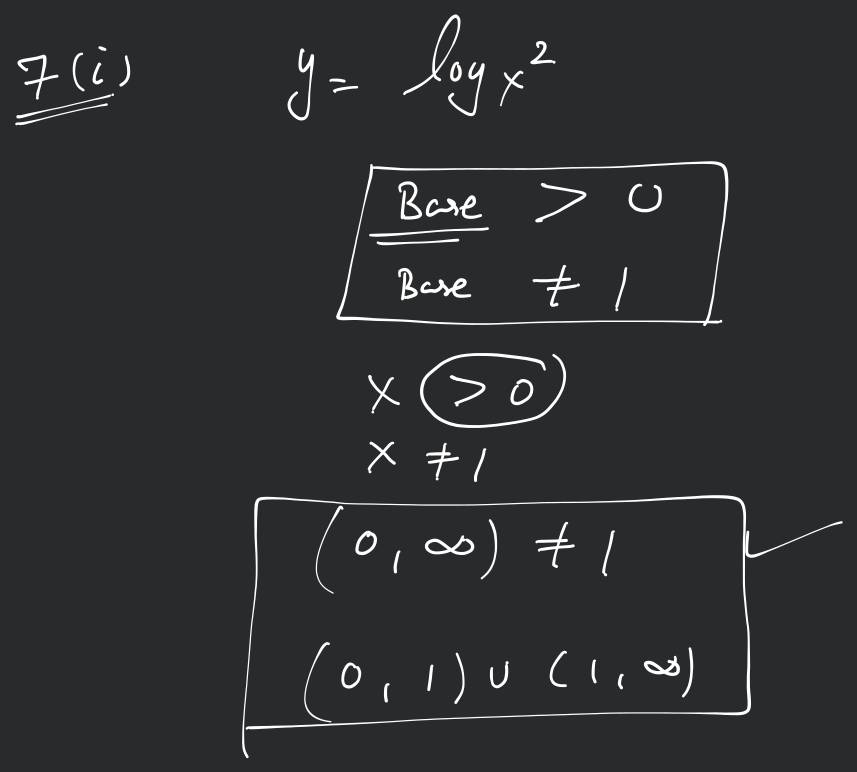 7(i) y = log x²
Base > 0
Base ≠ 1
x > 0
x ≠ 1
(0, ∞) ≠ 1
(0, 1) ∪ (1, ∞)